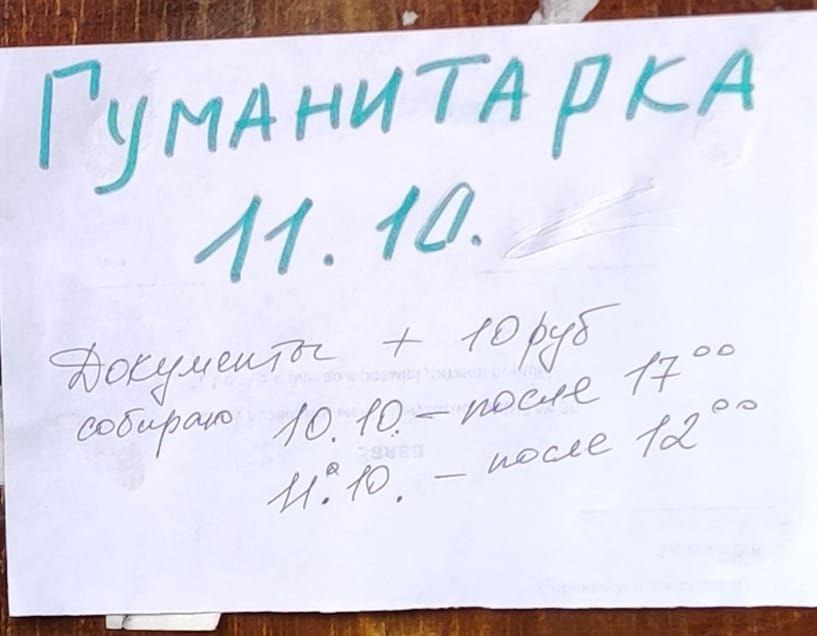 ГУМАНИТАРКА
11.10.
Документы + 10 руб
собираю 10.10. – после 17⁰⁰
11.10. – после 12⁰⁰